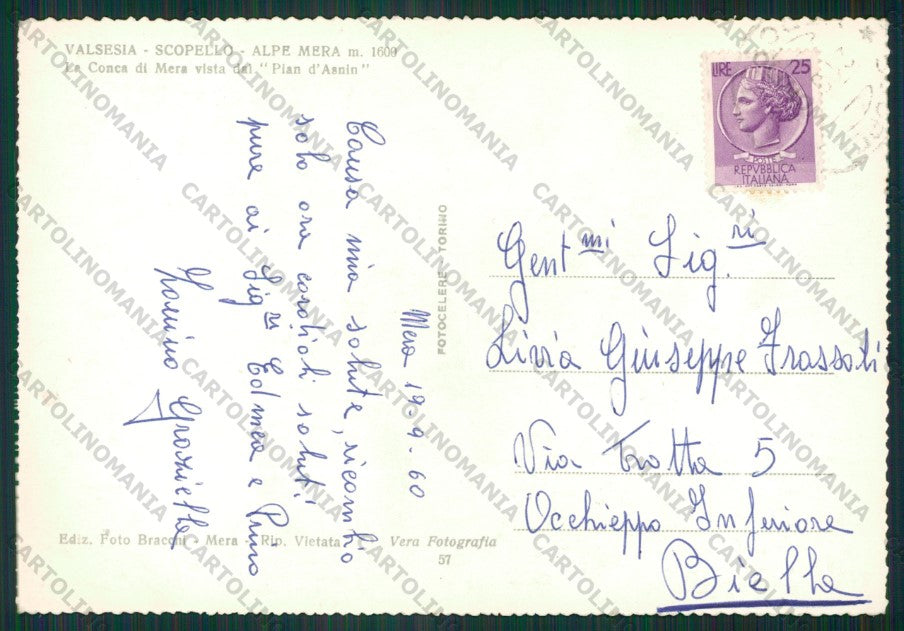 VALSESIA - SCOPELLO - ALPE MERA m. 1600
La Conca di Mera vista dal "Pian d'Asnin"
LIRE 25
POSTE
REPVBBLICA
ITALIANA
Mera 19.9.60
Causa mia salute, ricambio
solo ora cordiali saluti
pure ai Sig.ri Edmea e Pino
Graziella
FOTOCELERE - TORINO
Gent.mi Sig.ri
Livia Giuseppe Frassati
Via Trotta 5
Occhieppo Inferiore
Biella
Ediz. Foto Bracchi - Mera - Rip. Vietata
Vera Fotografia
57
CARTOLINOMANIA